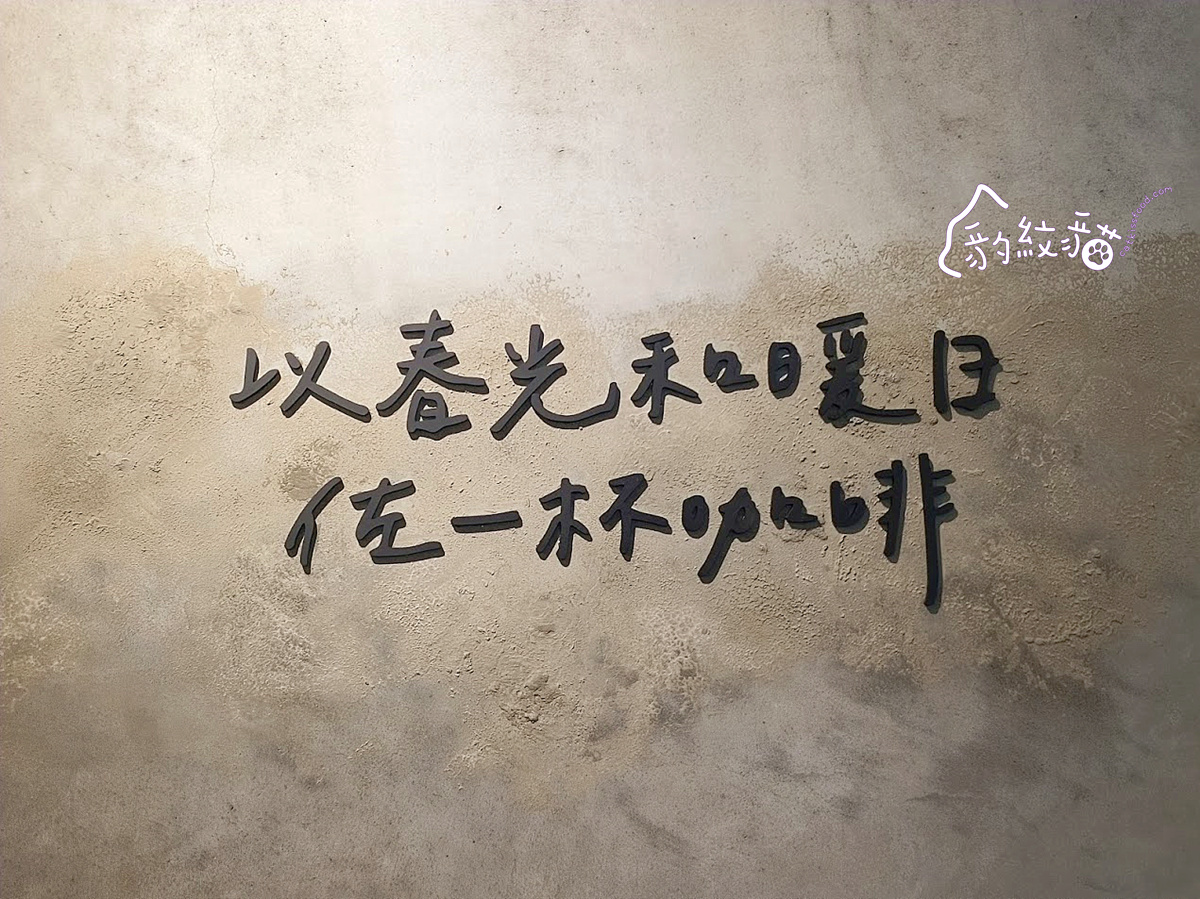 豹紋貓
以春光和暖日
佐一杯咖啡